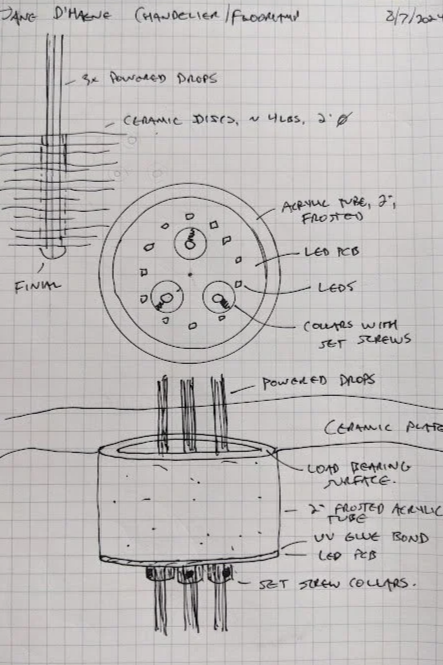 JANE D'HAENE CHANDELIER/FLOORLAMP 2/7/2024
3x POWERED DROPS
CERAMIC DISCS, ~ 4LBS, 2' Ø
ACRYLIC TUBE, 2",
FROSTED
LED PCB
FINIAL
LEDS
COLLARS WITH
SET SCREWS
POWERED DROPS
CERAMIC PLATE
LOAD BEARING
SURFACE.
2" FROSTED ACRYLIC
TUBE
UV GLUE BOND
LED PCB
SET SCREW COLLARS.